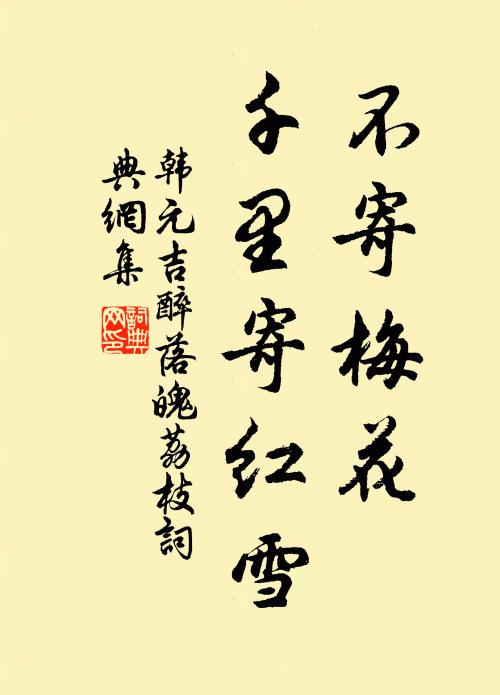 不寄梅花
千里寄红雪
韩元吉醉落魄荔枝词
典網集
詞典網印